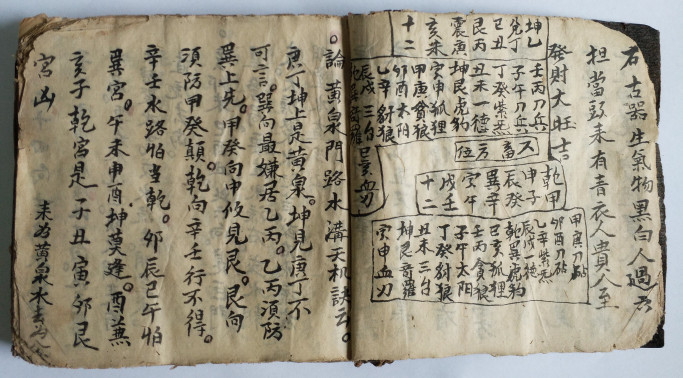 石古器生氣物黑白人過
担當頭來有青衣人貴人至
發財大旺吉
坤乙
兌丁
己丑
艮丙
震庚
亥未
十二
壬丙刀兵
子午刀兵
丁癸紫炁
丑未一德
坤艮虎豹
寅申狐狸
甲庚貪狼
卯酉太阳
乙辛豺狼
辰戌三台
奇羅
巳亥血刃
六畜方位
乾甲
甲子
辰癸
巽辛
寅午
戌壬
十二
甲寅刀砧
卯酉刀砧
乙辛紫炁
辰戌一德
乾巽虎豹
巳亥狐狸
壬丙貪狼
子午太阳
丁癸豺狼
丑未三台
坤艮奇羅
寅申血刃
論黃泉門路水溝天机訣云。
庚丁坤上是黃泉。坤見庚丁不
可言。巽向最嫌居乙丙。乙丙須防
巽上先。甲癸向中攸見艮。艮向
須防甲癸顛。乾向辛壬行不得。
辛壬水路怕当乾。卯辰巳午怕
巽宮。午未申酉坤莫逢。酉兼
亥子乾宮是。子丑寅卯艮
宮凶 未為黃泉水去為